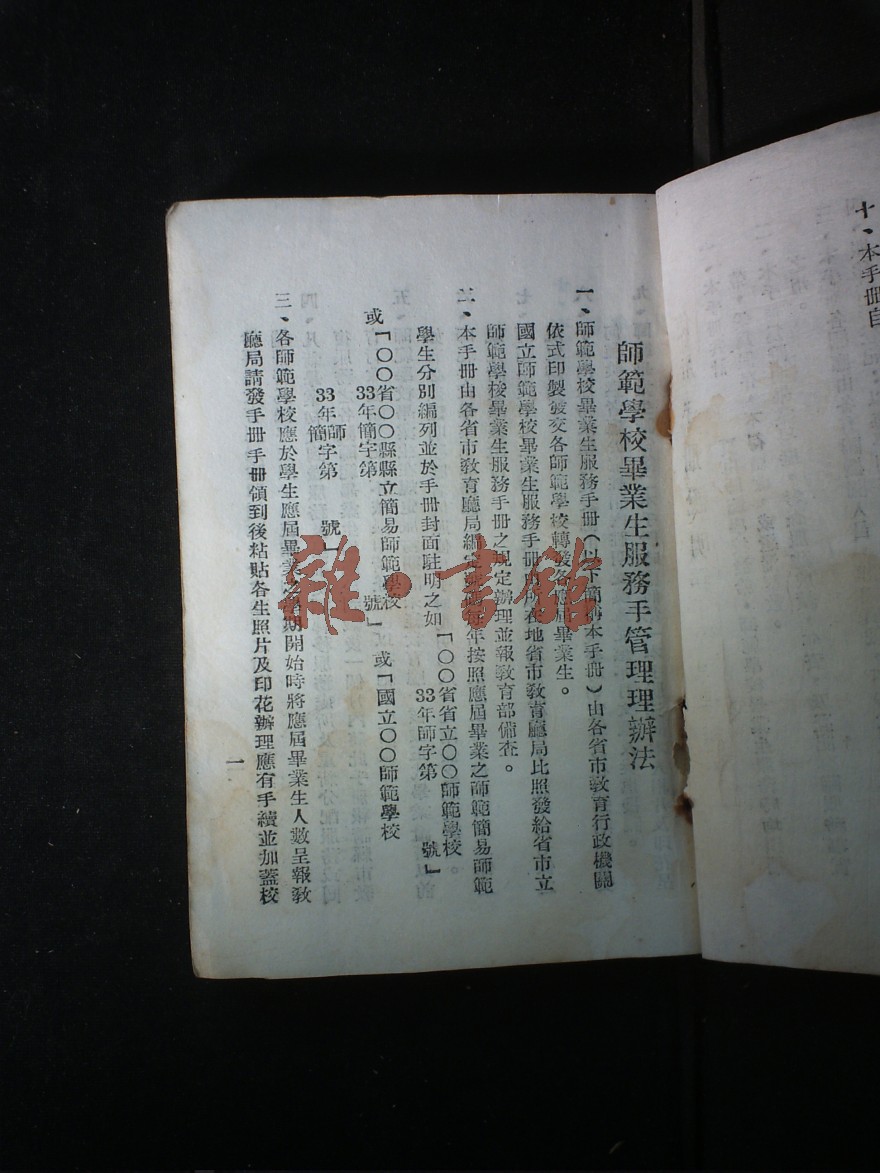 十、本手冊自
師範學校畢業生服務手管理理辦法
一、師範學校畢業生服務手冊（以下簡稱本手冊）由各省市敎育行政機關
依式印製發交各師範學校轉發各應屆畢業生。
國立師範學校畢業生服務手冊由所在地省市敎育廳局比照發給省市立
師範學校畢業生服務手冊之規定辦理並報敎育部備查。
二、本手冊由各省市敎育廳局編定號碼每年按照應屆畢業之師範簡易師範
學生分別編列並於手冊封面駐明之如「〇〇省省立〇〇師範學校。
33年師字第　　號」
或「〇〇省〇〇縣縣立簡易師範學校
33年簡字第　　號」或「國立〇〇師範學校
33年師
簡字第　　號」
三、各師範學校應於學生應屆畢業之學期開始時將應屆畢業生人數呈報敎
廳局請發手冊手冊領到後粘貼各生照片及印花辦理應有手續並加蓋校
一
雜·書館